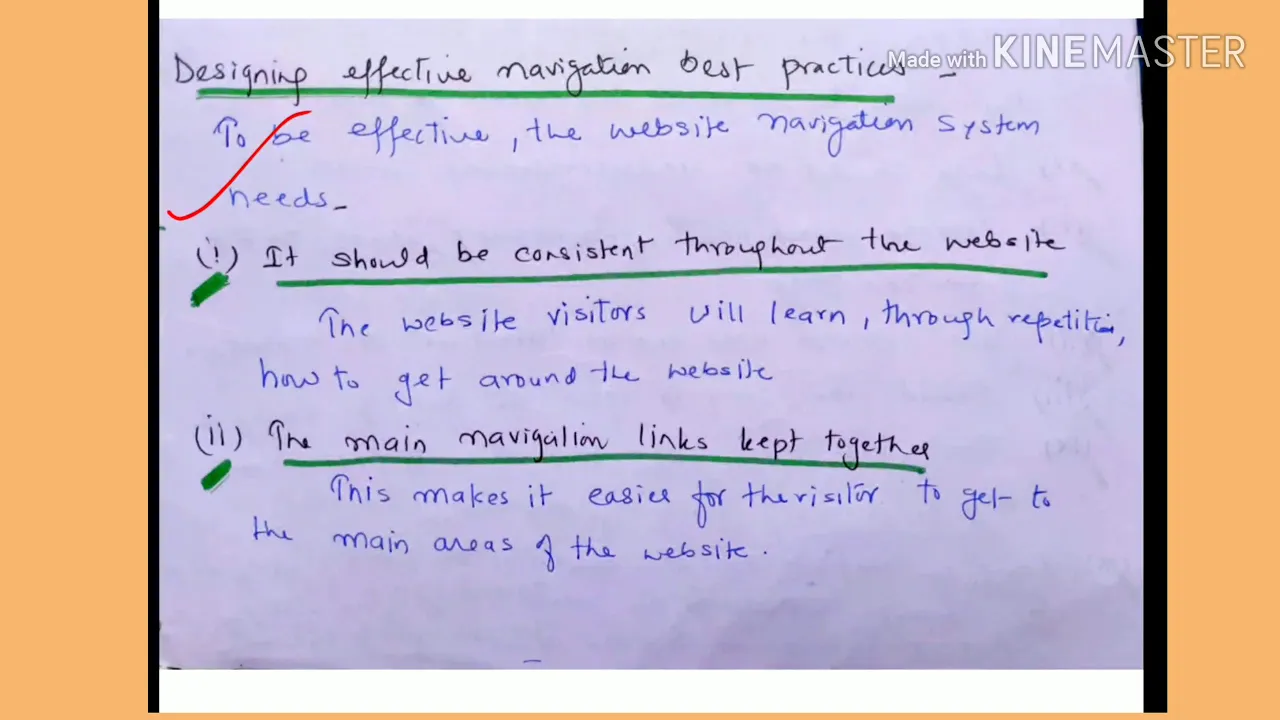 Designing effective navigation best practices -
Made with KINEMASTER
To be effective, the website navigation system
needs -
(i) It should be consistent throughout the website
The website visitors will learn, through repetition,
how to get around the website
(ii) The main navigation links kept together
This makes it easier for the visitor to get to
the main areas of the website.